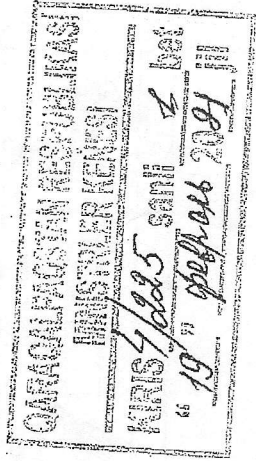 QARAQALPAQSTAN RESPUBLIKASI
MINISTRLER KEŃESI
KIRIS 4/225 sanlı 1 bet
" 19 " февраль 2021 jıl